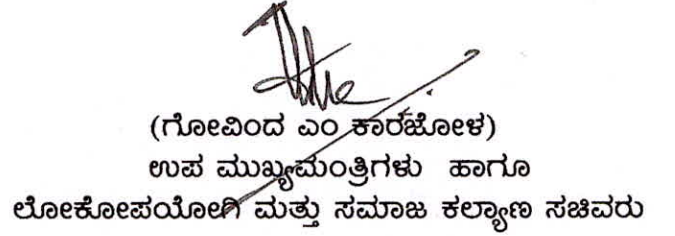 (ಗೋವಿಂದ ಎಂ ಕಾರಜೋಳ)
ಉಪ ಮುಖ್ಯಮಂತ್ರಿಗಳು ಹಾಗೂ
ಲೋಕೋಪಯೋಗಿ ಮತ್ತು ಸಮಾಜ ಕಲ್ಯಾಣ ಸಚಿವರು